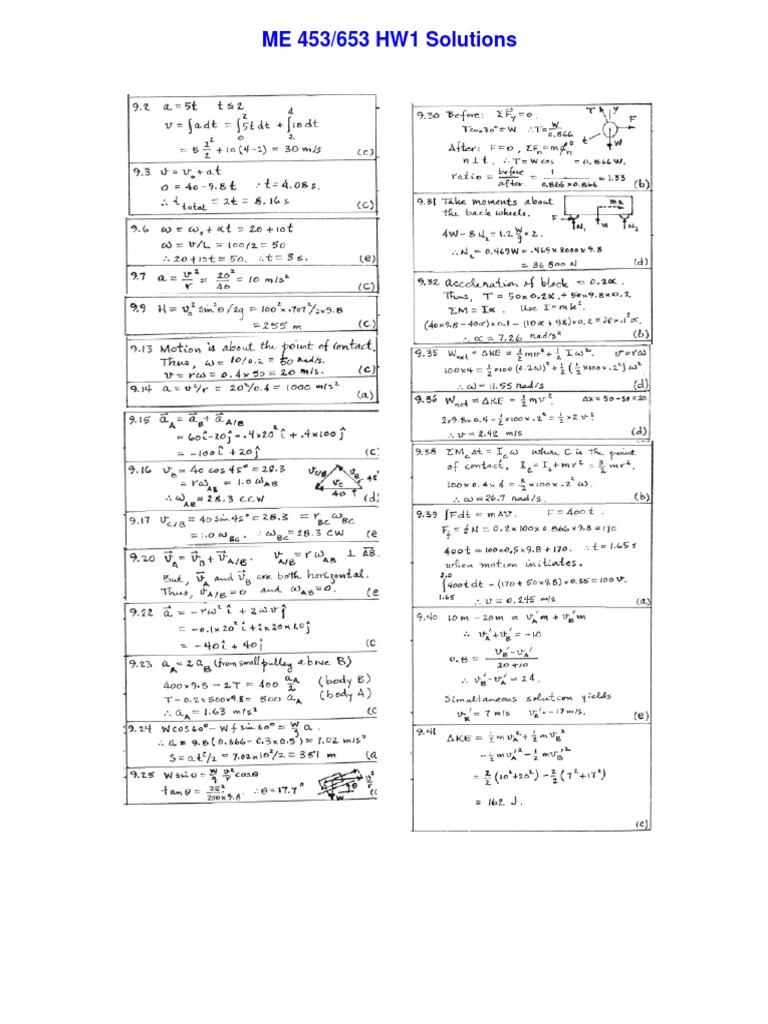 ME 453/653 HW1 Solutions
9.2 a = 5t t ≤ 2
v = ∫a dt = ∫5t dt + ∫10 dt
= 5 2²/2 + 10(4-2) = 30 m/s (c)
9.3 v = v₀ + at
0 = 40 - 9.8t ∴ t = 4.08 s.
∴ t total = 2t = 8.16 s (c)
9.6 ω = ω₀ + αt = 20 + 10t
ω = v/L = 100/2 = 50
∴ 20 + 10t = 50. ∴ t = 3 s. (e)
9.7 a = v²/r = 20²/40 = 10 m/s² (c)
9.9 H = v₀² sin²θ/2g = 100² × .707²/2×9.8
= 255 m (c)
9.13 Motion is about the point of contact.
Thus, ω = 10/0.2 = 50 rad/s.
v = rω = 0.4 × 50 = 20 m/s. (c)
9.14 a = v²/r = 20²/0.4 = 1000 m/s² (a)
9.15 a⃗A = a⃗B + a⃗A/B
= 60î - 20ĵ - .4×20² î + .4×100 ĵ
= -100î + 20ĵ (c
9.16 vB = 40 cos 45° = 28.3
= rωAB = 1.0 ωAB
∴ ωAB = 28.3 CCW
vC/B vB 45°
vC
40
(d
9.17 vC/B = 40 sin 45° = 28.3 = rBC ωBC
= 1.0 ωBC. ∴ ωBC = 28.3 CW (e
9.20 v⃗A = v⃗B + v⃗A/B. vA/B = rωAB ⊥ AB.
But, v⃗A and v⃗B are both horizontal.
Thus, vA/B = 0 and ωAB = 0. (e
9.22 a⃗ = -rω² î + 2ωv ĵ
= -0.1×20² î + 2×20×1.0 ĵ
= -40î + 40ĵ (c
9.23 aA = 2aB (from small pulley above B)
400×9.8 - 2T = 400 aA/2 (body B)
T - 0.2×500×9.8 = 500 aA (body A)
∴ aA = 1.63 m/s² (c
9.24 W cos 60° - Wf sin 60° = W/g a.
∴ a = 9.8(0.866 - 0.3×0.5) = 7.02 m/s²
S = at²/2 = 7.02×10²/2 = 351 m (a
9.25 W sin θ = W/g v²/r cos θ
tan θ = 25²/200×9.8. ∴ θ = 17.7°
v²/r
θ
W
9.30 Before: ΣFy = 0.
T cos 30° = W ∴ T = W/0.866
After: F = 0, ΣFn = man
n ⊥ t. ∴ T = W cos = 0.866W.
ratio = before/after = 1/0.866×0.866 = 1.33 (b)
T y F
t W
9.31 Take moments about
the back wheels.
4W - 8N₂ = 1.2 W/g × 2.
∴ N₂ = 0.469W = .469×8000×9.8
= 36 800 N (d)
ma
F N₁ W N₂
9.32 Acceleration of block = 0.2α.
Thus, T = 50×0.2α + 50×9.8×0.2
ΣM = Iα. Use I = mk².
(40×9.8 - 40α)×0.1 - (10α + 98)×0.2 = 20×.1²α
∴ α = 7.26 rad/s² (b)
9.35 Wnet = ΔKE = ½mv² + ½Iω². v = rω
100×4 = ½×100(0.2ω)² + ½(½×100×.2²)ω²
∴ ω = 11.55 rad/s (d)
9.36 Wnet = ΔKE = ½mv². Δx = 50-30 = 20
2×9.8×0.4 - ½×100×.2² = ½×2v²
∴ v = 2.42 m/s (d)
9.38 ΣMc Δt = Icω where C is the point
of contact. Ic = I₀ + mr² = 3/2 mr².
100×0.4×4 = 3/2×100×.2²ω)
∴ ω = 26.7 rad/s. (b)
9.39 ∫F dt = mΔv. F = 400t.
Ff = fN = 0.2×100×0.866×9.8 = 170
400t = 100×0.5×9.8 + 170. ∴ t = 1.65 s
when motion initiates.
∫400t dt - (170 + 50×9.8)×0.35 = 100v.
∴ v = 0.245 m/s (a)
9.40 10m - 20m = vA'm + vB'm
∴ vA' + vB' = -10
0.8 = vB' - vA'/20+10
∴ vB' - vA' = 24.
Simultaneous solution yields
vB' = 7 m/s vA' = -17 m/s. (e)
9.41 ΔKE = ½mvA² + ½mvB²
- ½mvA'² - ½mvB'²
= 2/2(10² + 20²) - 2/2(7² + 17²)
= 162 J. (c)